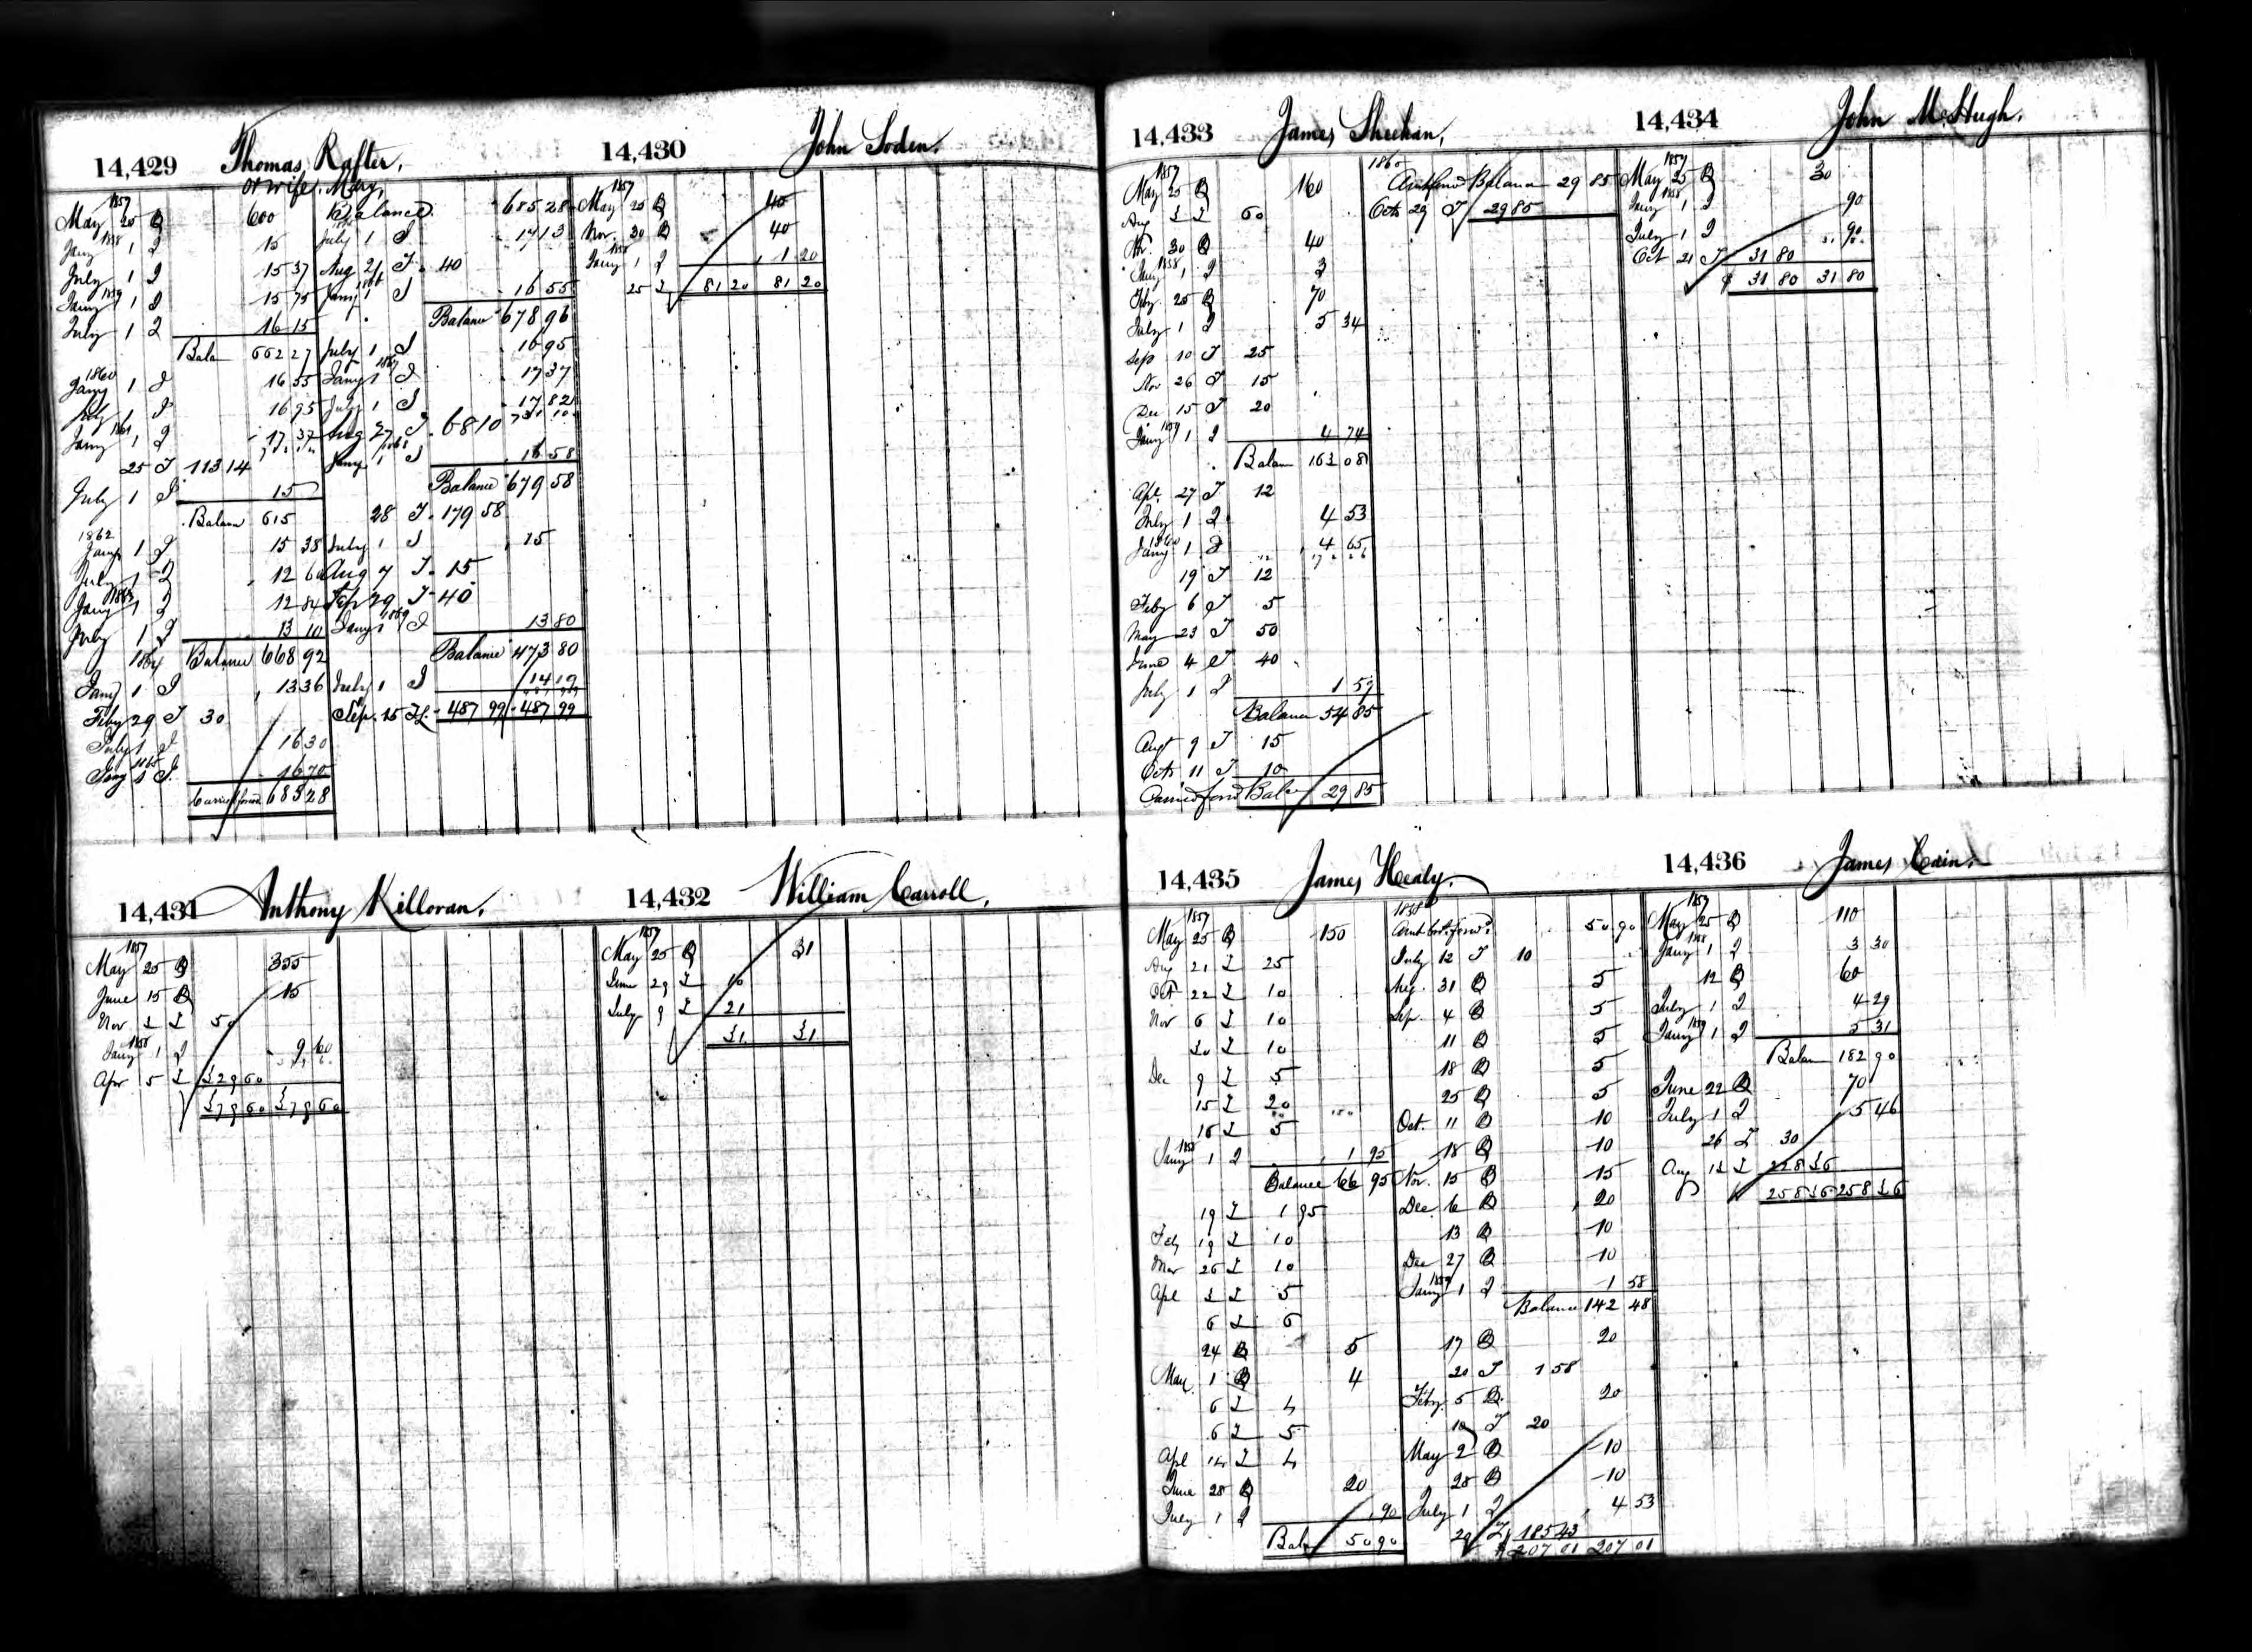 14,429 Thomas Rafter,
or wife Mary,
1857
May 25 D 600
1858
Jany 1 I 15
July 1 I 15 37
1859
Jany 1 I 15 75
July 1 I 16 15
Balan 662 27
1860
Jany 1 I 16 55
July 1 I 16 95
1861
Jany 1 I 17 37
25 T 113 14
July 1 I 15
Balan 615
1862
Jany 1 I 15 38
July 1 I 12 60
1863
Jany 1 I 12 84
July 1 I 13 10
1864 Balance 668 92
Jany 1 I 13 36
Feby 29 T 30
July 1 I 16 30
1865
Jany 1 I 16 70
Carried forwd 685 28
Balance 685 28
July 1 I 17 13
Aug 21 T 40
1866
Jany 1 I 16 55
Balance 678 96
July 1 I 16 95
1867
Jany 1 I 17 37
July 1 I 17 82
Aug 27 T 68 10
1868
Jany 1 I 16 58
Balance 679 58
28 T 179 58
July 1 I 15
Aug 7 T 15
Sep 29 T 40
1869
Jany 1 I 13 80
Balance 473 80
July 1 I 14 19
Sep. 15 T 487 99 487 99
14,430 John Soden.
1857
May 25 D 40
Nov. 30 D 40
1858
Jany 1 I 1 20
25 T 81 20 81 20
14,431 Anthony Killoran.
1857
May 25 D 355
June 15 D 15
Nov 3 T 50
1858
Jany 1 I 9 60
Apr 5 T 329 60
379 60 379 60
14,432 William Carroll.
1857
May 25 D 31
June 29 T 10
July 9 T 21
31 31
14,433 James Sheehan,
1857
May 25 D 160
Aug 3 T 60
Nov. 30 D 40
1858
Jany 1 I 3
Feby. 25 D 70
July 1 I 5 34
Sep 10 T 25
Nov 26 T 15
Dec 15 T 20
1859
Jany 1 I 4 74
Balan 163 08
Apl. 27 T 12
July 1 I 4 53
1860
Jany 1 I 4 65
19 T 12
Feby 6 T 5
May 23 T 50
June 4 T 40
July 1 I 1 59
Balance 54 85
Augt 9 T 15
Octr 11 T 10
Carried forwd Balce 29 85
1860
Amt forwd Balance 29 85
Octr 29 T 29 85
14,434 John McHugh.
1857
May 25 D 30
1858
Jany 1 I 90
July 1 I 90
Oct 21 T 31 80
$ 31 80 31 80
14,435 James Healy.
1857
May 25 D 150
Aug 21 T 25
Oct 22 T 10
Nov 6 T 10
30 T 10
Dec 9 T 5
15 T 20
16 T 5
1858
Jany 1 I 1 95
Balance 66 95
19 T 1 95
Feb 19 T 10
Mar 26 T 10
Apl 3 T 5
6 T 6
24 D 5
May 1 D 4
6 T 4
6 T 5
Apl 14 T 4
June 28 D 20
July 1 I 90
Balce 50 90
1858
Amt brt. forwd. 50 90
July 12 T 10
Aug. 31 D 5
Sep. 4 D 5
11 D 5
18 D 5
25 D 5
Oct. 11 D 10
18 D 10
Nov. 15 D 15
Dec. 6 D 20
13 D 10
Dec 27 D 10
1859
Jany 1 I 1 58
Balance 142 48
17 D 20
20 T 1 58
Feby. 5 D. 20
10 T 20
May 2 D 10
28 D 10
July 1 I 4 53
29 T 185 43
$ 207 01 207 01
14,436 James Cain.
1857
May 25 D 110
1858
Jany 1 I 3 30
12 D 60
July 1 I 4 29
1859
Jany 1 I 5 31
Balan 182 90
June 22 D 70
July 1 I 5 46
26 T 30
Aug 13 T 228 36
258 36 258 36